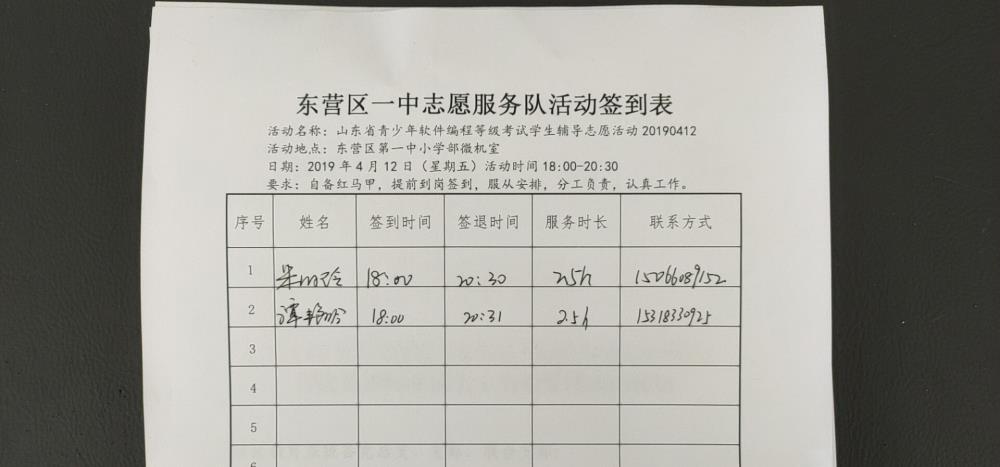 东营区一中志愿服务队活动签到表
活动名称：山东省青少年软件编程等级考试学生辅导志愿活动 20190412
活动地点：东营区第一中小学部微机室
日期：2019 年 4 月 12 日（星期五）活动时间 18:00-20:30
要求：自备红马甲，提前到岗签到，服从安排，分工负责，认真工作。
序号 姓名 签到时间 签退时间 服务时长 联系方式
1 18:00 20:30 2.5h 15066089152
2 18:00 20:31 2.5h 15318330925
3
4
5
6